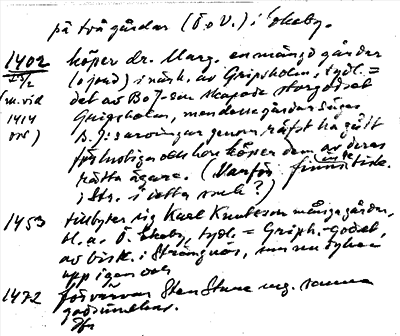 på två gårdar (Ö. o V.) i Ekeby.
1402 köper dr. Marg. en mängd gårdar
23/2 (o jord) i närh. av Gripsholm, tydl. =
(m. vid det av Bo J-son skapade storgodset
1414 Gripsholm, men dessa gårdar säges
ovs) B. J:s arvingar genom räfst ha gått
förlustiga och hon köper dem av deras
rätta ägare. (Varför finns
i Sts. i detta smh?)
1453 tillbyter sig Karl Knutsson många gårdar,
bl. a. Ö. Ekeby, tydl. = Griph.-godset,
av bisk. i Strängnäs, som
upp igen och
1472 förvärvar Sten Sture ung. samma